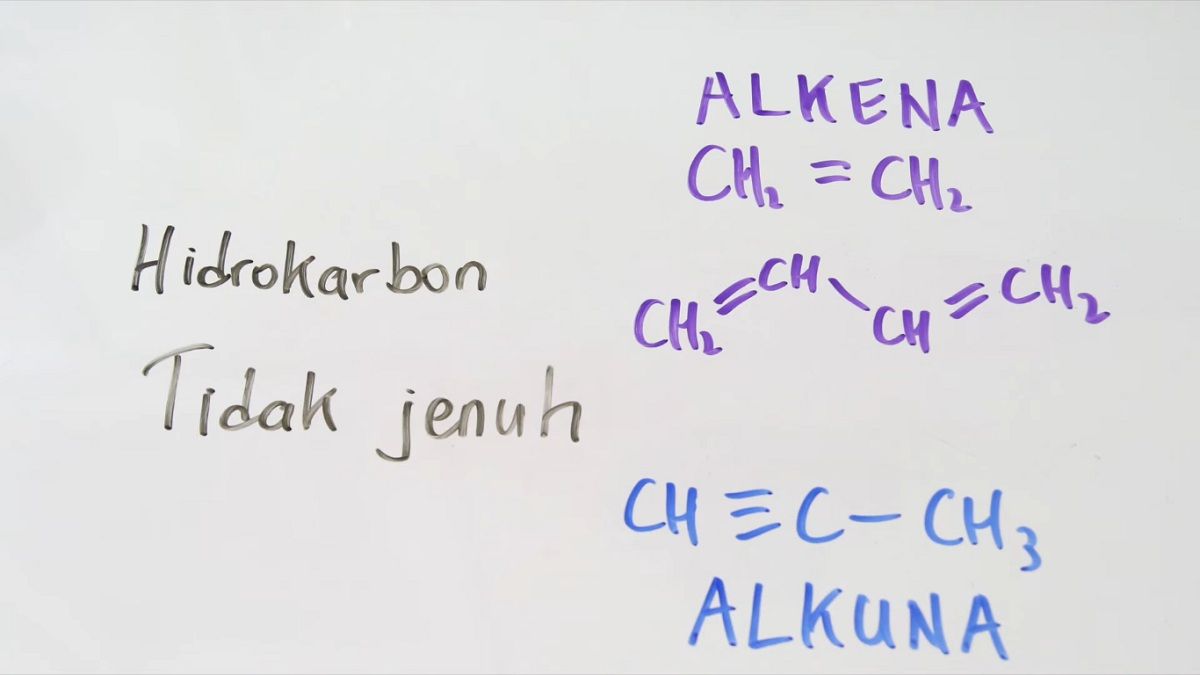 Hidrokarbon
Tidak jenuh
ALKENA
CH₂ = CH₂
CH₂ = CH \ CH = CH₂
CH ≡ C – CH₃
ALKUNA